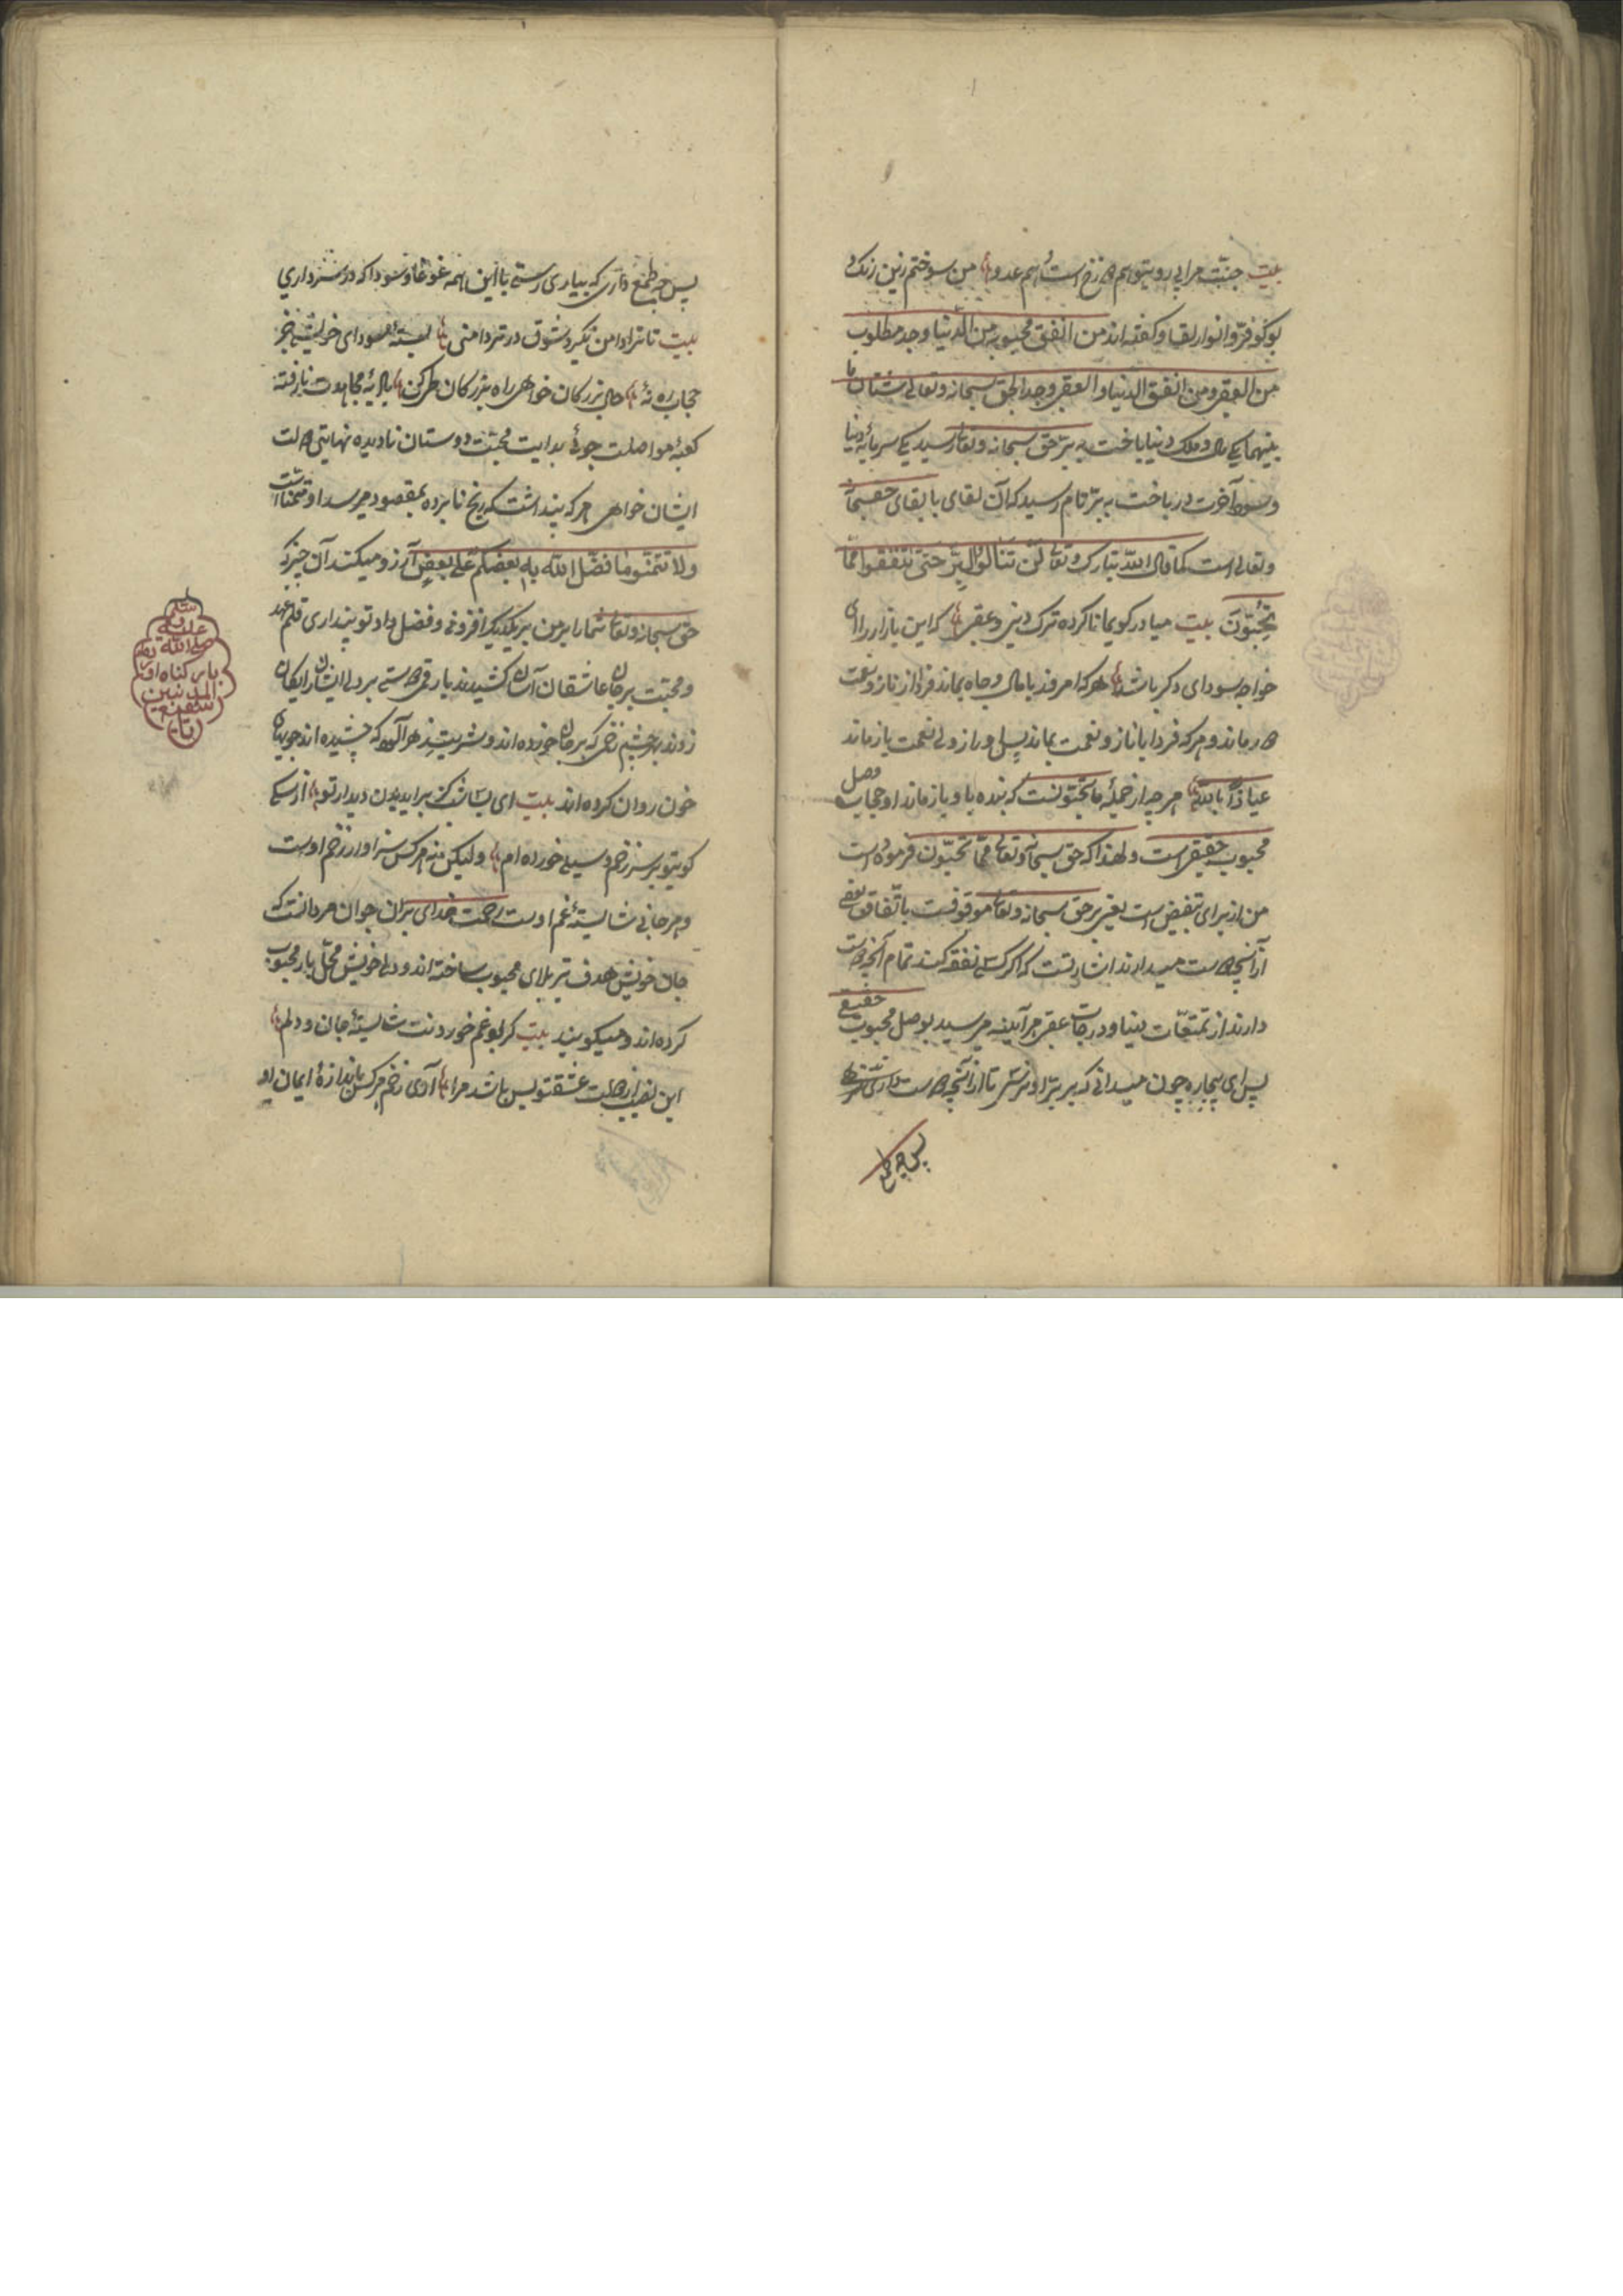 بیت جنت مرا بی روی تو هم دوزخ است و هم عدو من سوختم زین رنگ و
بو کو فرّ و انوار لقا و گفته اند من انفق محبوبه من الدنیا وجد مطلوبه
من العقبی و من انفق الدنیا و العقبی وجد الحق سبحانه و تعالی شتان ما
بینهما یکی مال و ملک دنیا باخت به برّ حق سبحانه و تعالی رسید یکی سرمایه دنیا
و سود آخرت در باخت به برّ تام رسید که آن لقای با بقای حق سبحانه
و تعالی است کما قال الله تبارک و تعالی لَن تَنَالُوا البِرَّ حَتّی تُنفِقُوا مِمّا
تُحِبّونَ بیت میا در کوی ما ناکرده ترک دنیی و عقبی که این بازار را ای
خواجه سودای دگر باشد هر که امروز با مال و جاه بماند فردا از ناز و نعمت
در ماند و هر که فردا با ناز و نعمت بماند پس او راز ولی نعمت باز ماند
عیاذاً بالله هر چه از جمله ما تحبون است که بنده با او باز ماند او حجاب وصل
محبوب حقیقی است و لهذا که حق سبحانه و تعالی مما تحبّون فرموده است
من از برای تبعیض است یعنی بر حق سبحانه و تعالی موقوفست باتفاق بعضی
از آنچه دوست میدارند اشارتست که اگر کسی نفقه کند تمام آنچه دوست
دارند از تمتعات دنیا و درجات عقبی هر آینه میرسد بوصل محبوب حقیقی
پس ای بیچاره چون میدانی که بر برّ او نرسی تا از آنچه دوست داری
پس چه طمع
پس چه طمع داری که بیاری رستی با این همه غوغا و سودا که در سر داری
بیت تا ترا دامن نگیرد شوق در تردامنی بسته سودای خویشی
حجاب ره نه حال بزرگان خواهی راه بزرگان طی کن بادیه مجاهدت نارفته
کعبه مواصلت جوئی بدایت محبت دوستان نادیده نهایت دولت
ایشان خواهی هر که پنداشت که رنج نابرده بمقصود میرسد او متمنی است
ولا تتمنوا ما فضل الله به بعضکم علی بعض آرزو میکنید آن چیز که
حق سبحانه و تعالی شما را بر من بر یکدیگر افزونی و فضل داد تو پنداری قلم عهد
و محبت بر جان عاشقان آسان کشیدند یا رقم دوستی بر دل ایشان رایگان
زدند بهر چشم زخمی که بر جان خورده اند و شربت زهرآلود که چشیده اند جوی
خون روان کرده اند بیت ای بسا شب کز برای دیدن دیدار تو از سگ
کوی تو بر سر زخم و سیلی خورده ام ولیکن نه هر کس سزاوار زخم اوست
و هر جانی شایسته غم اوست رحمت خدای بر آن جوان مردانست که
جان خویش هدف تیر بلای محبوب ساخته اند و دل خویش محل بار محبوب
کرده اند و میگویند بیت گر بود غم خوردنت شایسته جان و دلم
این نصیب از دولت عشق تو بس باشد مرا آری زخم هر کس باندازه ایمان او
سلم
علیه و
صلی الله
بار گناه
المذنبین
شفیع
یا